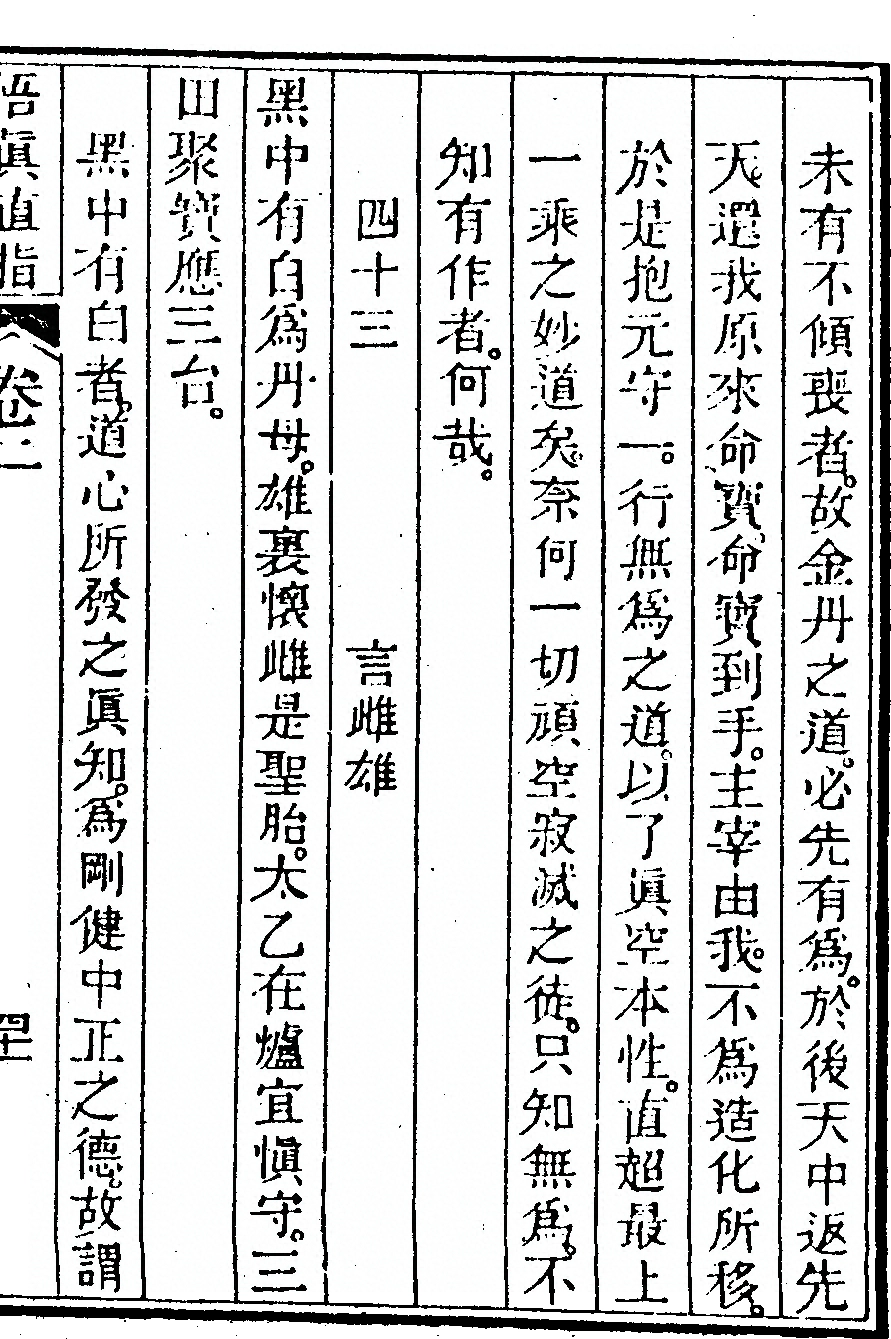 未有不傾喪者。故金丹之道。必先有爲。於後天中返先
天。還我原來命寶。命寶到手。主宰由我。不爲造化所移。
於是抱元守一。行無爲之道。以了眞空本性。直超最上
一乘之妙道矣。奈何一切頑空寂滅之徒。只知無爲。不
知有作者。何哉。
四十三　言雌雄
黑中有白爲丹母。雄裏懷雌是聖胎。太乙在爐宜愼守。三
田聚寶應三台。
黑中有白者。道心所發之眞知。爲剛健中正之德。故謂
悟眞直指　卷二